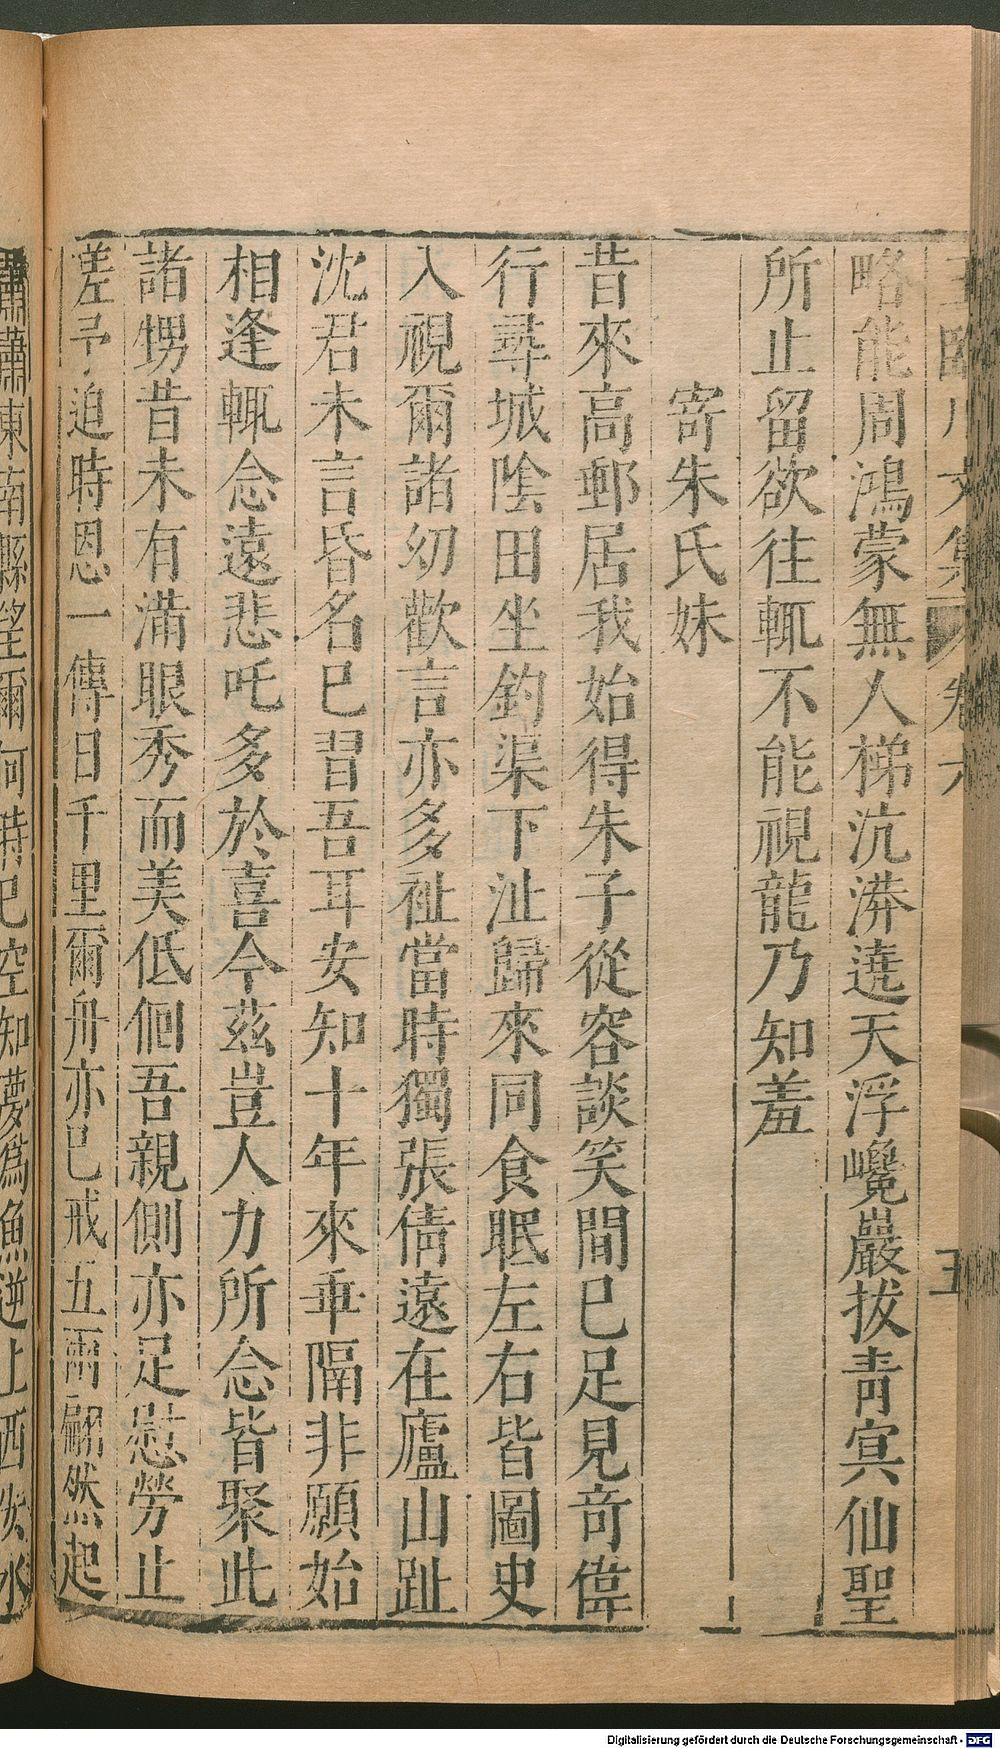 王臨川文集 卷六 五
略能周鴻蒙無人梯沆漭遶天浮巉巖拔青冥仙聖
所止留欲往輒不能視龍乃知羞
寄朱氏妹
昔來高郵居我始得朱子從容談笑間已足見奇偉
行尋城陰田坐釣渠下沚歸來同食眠左右皆圖史
入視爾諸幼歡言亦多祉當時獨張倩遠在廬山趾
沈君未言昏名已習吾耳安知十年來乖隔非願始
相逢輒念遠悲吒多於喜今茲豈人力所念皆聚此
諸甥昔未有滿眼秀而美低佪吾親側亦足慰勞止
嗟予迫時恩一傳日千里爾舟亦已戒五兩翩然起
蕭蕭東南縣望爾何時已空知夢爲魚逆上西江水
Digitalisierung gefördert durch die Deutsche Forschungsgemeinschaft - DFG